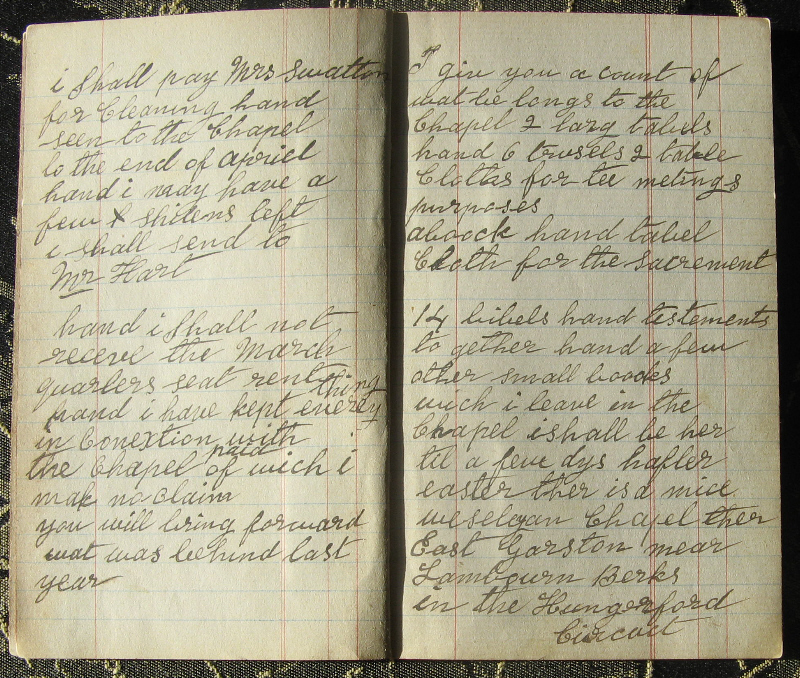 i shall pay Mrs Swatton
for Cleaning hand
seen to the Chapel
to the end of apriel
hand i may have a
few shilens left
i shall send to
Mr Hart
hand i shall not
receve the March
quarters seat rent
hand i have kept everey thing
in Conextion with
the Chapel paid of wich i
mak no claim
you will bring forward
wat was behind last
year
I give you a count of
wat be longs to the
Chapel 2 larg tabels
hand 6 trusels 2 table
Cloths for tee metings
purposes
aboock hand tabel
Cloth for the Sacrement
14 bibels hand testements
to gether hand a few
other small boocks
wich i leave in the
Chapel ishall be her
til a few dys hafter
easter ther is a nice
weseleyan Chapel ther
East Garston near
Lambourn Berks
in the Hungerford
Circuit